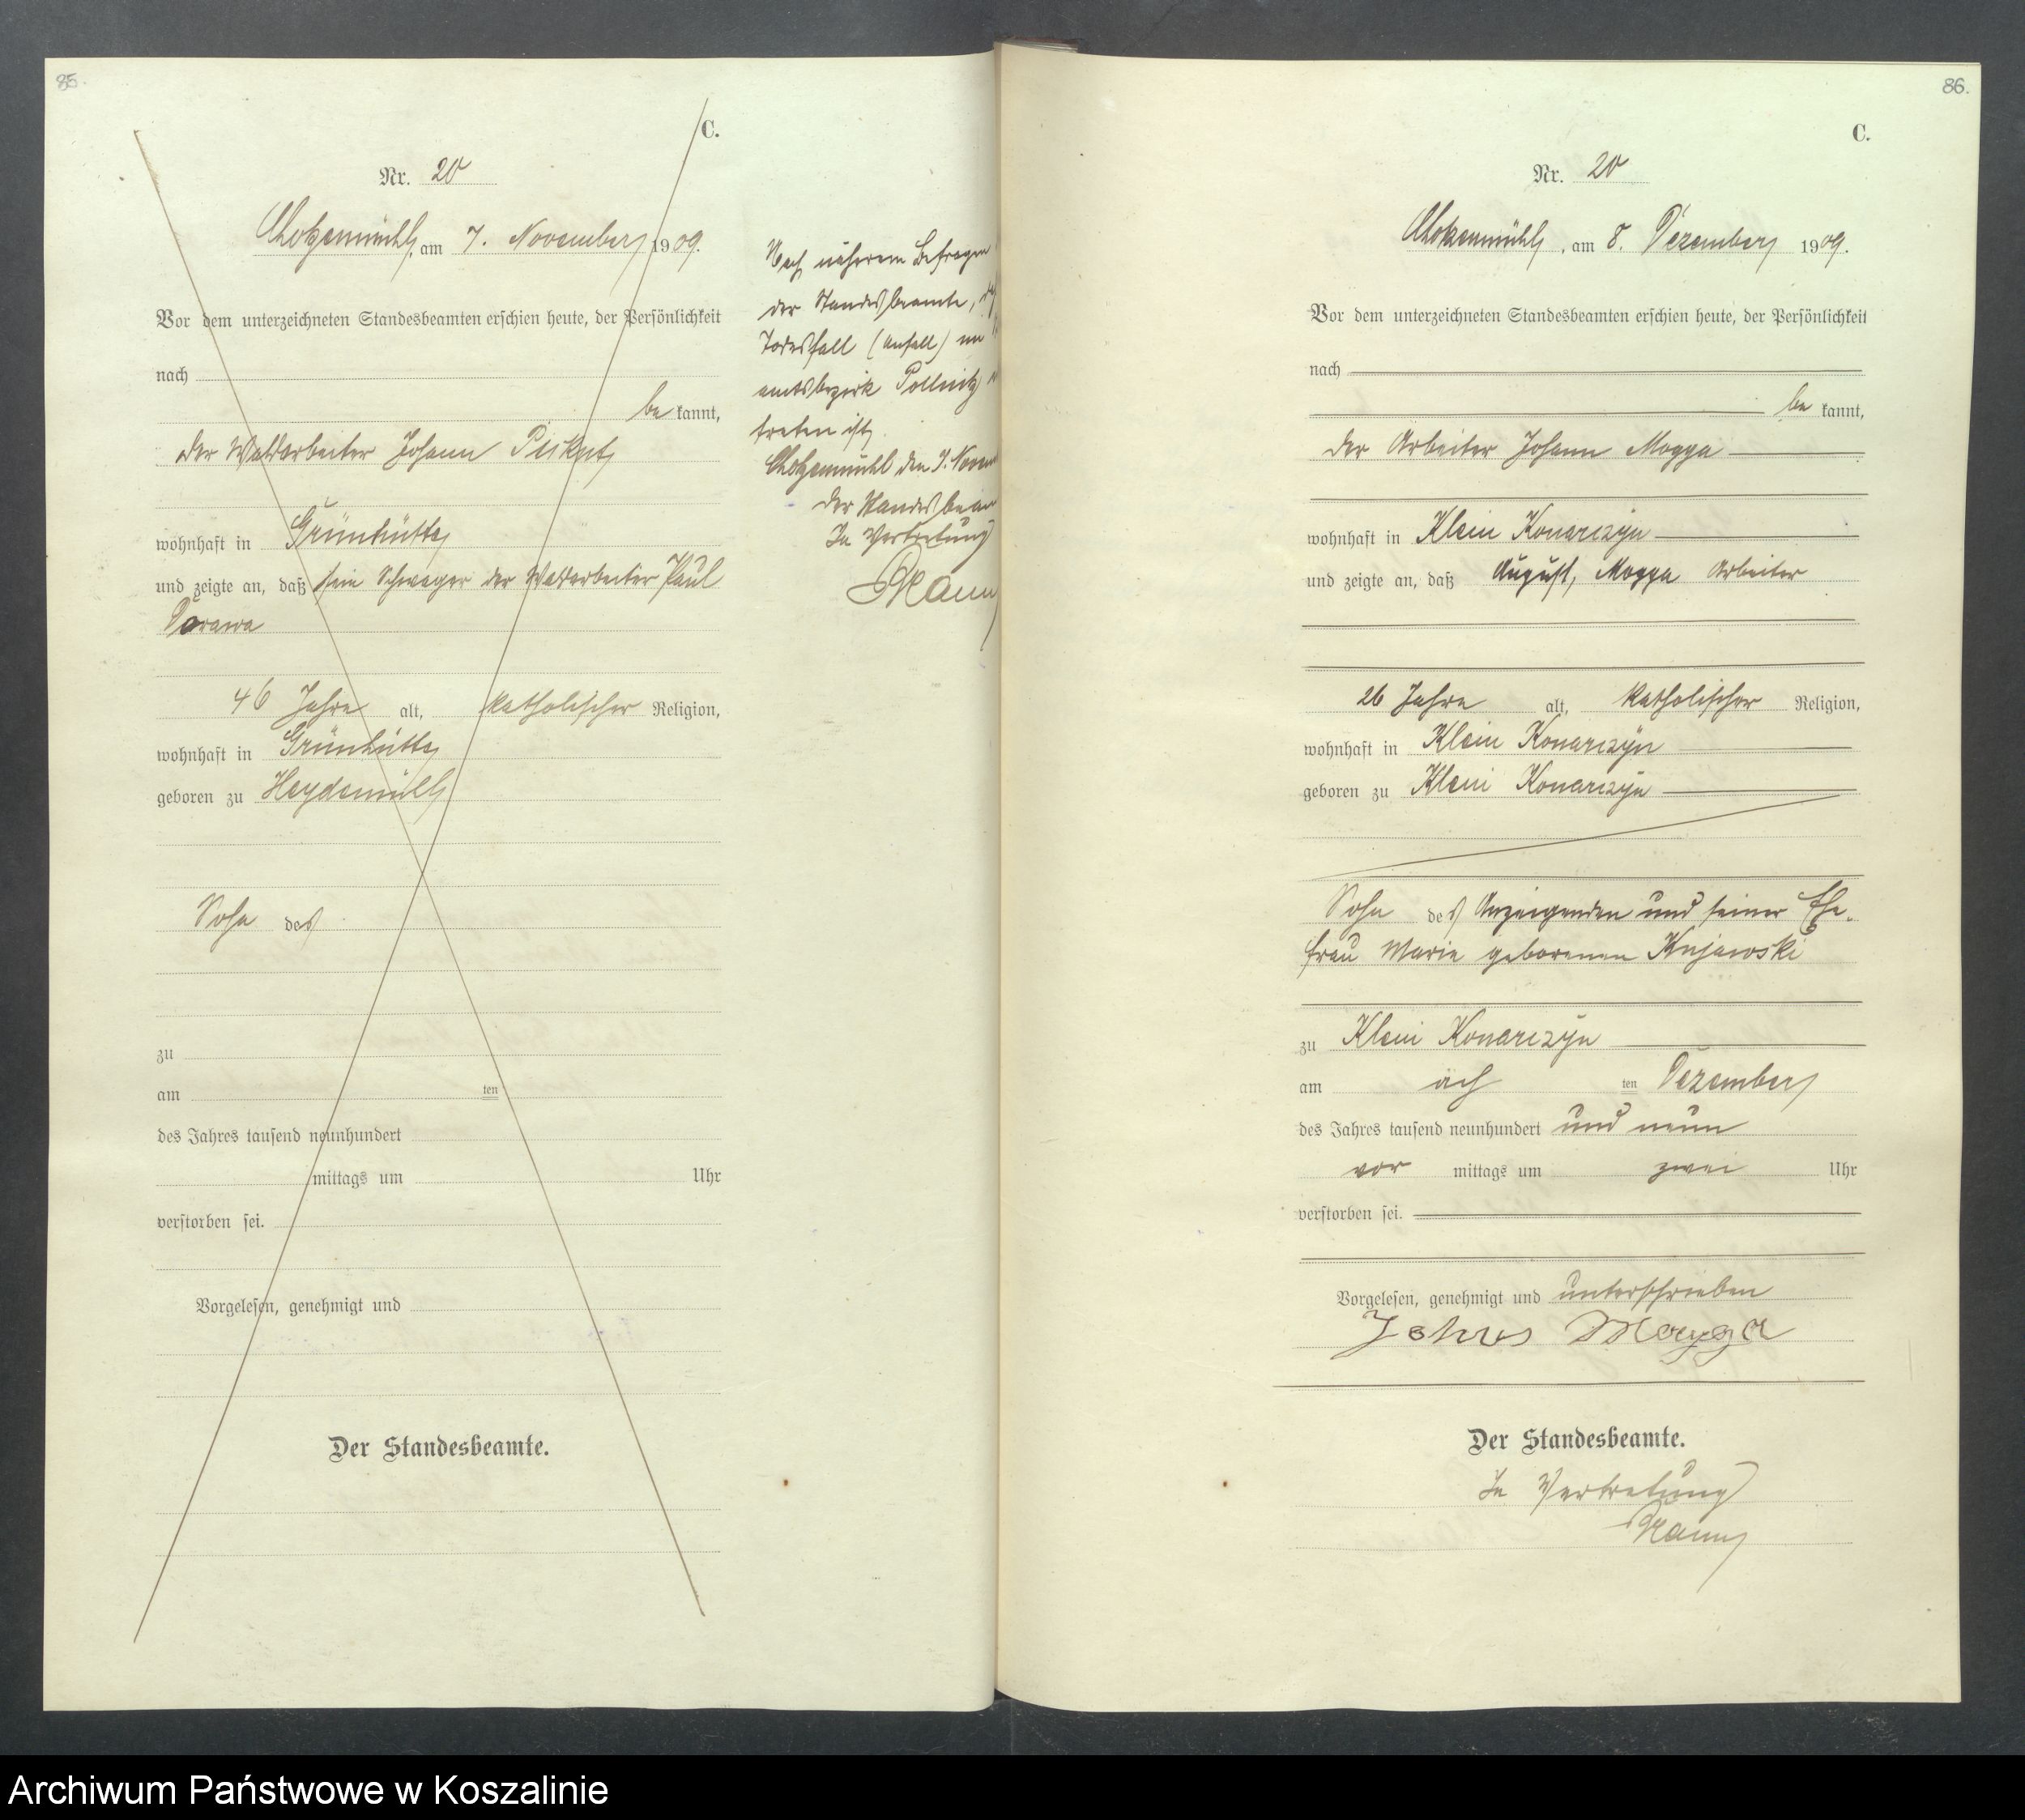 85.
C.
Nr. 20
Chotzenmühl, am 7. November 1909.
Vor dem unterzeichneten Standesbeamten erschien heute, der Persönlichkeit
nach
be kannt,
der Waldarbeiter Johann
wohnhaft in Grünhütte
und zeigte an, daß sein Schwager der Waldarbeiter Paul
46 Jahre alt, katholischer Religion,
wohnhaft in Grünhütte
geboren zu Heydemühl
Sohn des
zu
am ten
des Jahres tausend neunhundert
mittags um Uhr
verstorben sei.
Vorgelesen, genehmigt und
Der Standesbeamte.
Nach näherem Befragen
der Standesbeamte,
Todesfall (Unfall) im
amtsbezirk Pollnitz
treten ist.
Chotzenmühl den 7. Novem
Der Standesbeam
In Vertretung
86.
C.
Nr. 20
Chotzenmühl, am 8. Dezember 1909.
Vor dem unterzeichneten Standesbeamten erschien heute, der Persönlichkeit
nach
be kannt,
der Arbeiter Johann Mogga
wohnhaft in Klein Konarczyn
und zeigte an, daß August, Mogga Arbeiter
26 Jahre alt, katholischer Religion,
wohnhaft in Klein Konarczyn
geboren zu Klein Konarczyn
Sohn des Anzeigenden und seiner Ehe-
frau Marie geborenen Kujawski
zu Klein Konarczyn
am ach ten Dezember
des Jahres tausend neunhundert und neun
vor mittags um zwei Uhr
verstorben sei.
Vorgelesen, genehmigt und unterschrieben
Mogga
Der Standesbeamte.
In Vertretung
Archiwum Państwowe w Koszalinie